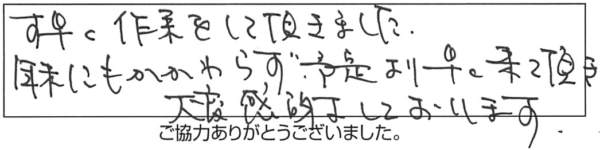 す早く作業をして頂きました。
年末にもかかわらず予定より早く来て頂き
大変感謝しております。
ご協力ありがとうございました。